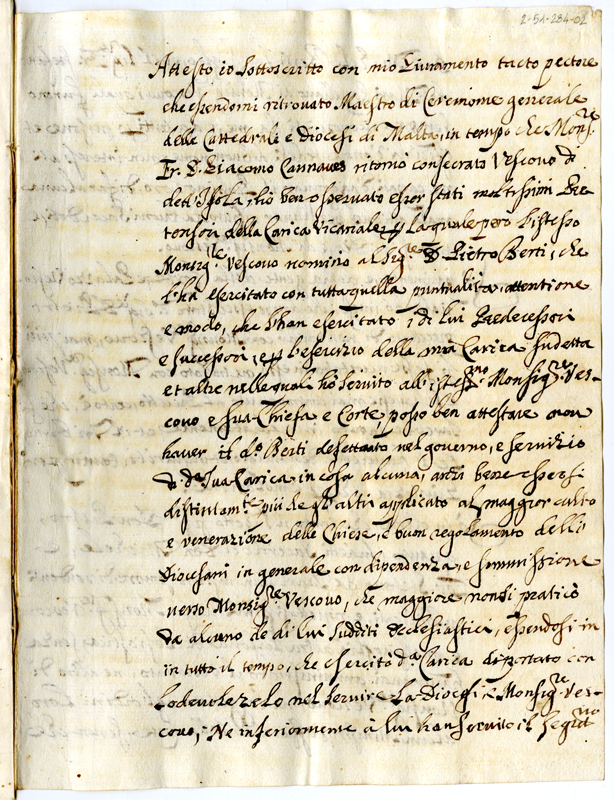 2-51-284-02
Attesto io sottoscritto con mio Giuramento tacto pectore
che essendomi ritrovato Maestro di Ceremonie generale
della Cattedrale e Diocesi di Malta, in tempo che Mons.re
Fr. D. Giacomo Cannaves ritornò consecrato Vescovo di
dett'Isola, hò ben osservato esser stati moltissimi Pre-
tensori della Carica Vicariale, La quale però l'istesso
Monsig.re Vescovo nominò al Sig.re D Pietro Berti, che
l'ha esercitato con tutta quella pontualità, attentione
e modo, che l'han esercitato i di lui Predecessori
e successori, e l'esercizio della mia Carica sudetta
et altre nelle quali hò servito all'istess.mo Monsig.re Ves-
covo e sua Chiesa e Corte, posso ben attestare non
haver il d.o Berti defettato nel governo, e servizio
d.a sua Carica in cosa alcuna, anzi bene essersi
distintam.te più che gl'altri applicato al maggior culto
e venerazione delle Chiese, e buon regolamento delli
Diocesani in generale con dipendenza, e summissione
verso Monsig.re Vescovo, che maggiore non si praticò
da alcuno de di lui sudditi ecclesiastici, essendosi in
in tutto il tempo, che esercitò d.a Carica diportato con
Lodevole zelo nel servire La Diocesi e Monsig.re Ves-
covo; Ne inferiormente à lui han servito il